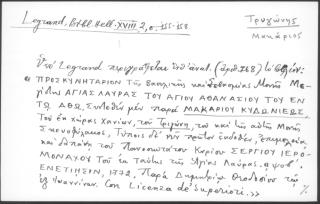 Legrand, Bibl. Hell. XVIII 2, σ. 155-158.
Τρυγώνης
Μακάριος
Ὑπὸ Legrand περιγράφεται ὑπ' ἀριθ. (ἀριθ. 768)
« ΠΡΟΣΚΥΝΗΤΑΡΙΟΝ τῆς βασιλικῆς καὶ σεβασμίας Μονῆς Με-
γίστης ΑΓΙΑΣ ΛΑΥΡΑΣ ΤΟΥ ΑΓΙΟΥ ΑΘΑΝΑΣΙΟΥ ΤΟΥ ΕΝ
ΤΩ ΑΘΩ, Συντεθὲν μὲν παρὰ ΜΑΚΑΡΙΟΥ ΚΥΔΩΝΙΕΩΣ
Τοῦ ἐκ χώρας Χανίων, τοῦ Τρυγώνη, τοῦ καὶ τῆς αὐτῆς Μονῆς
Σκευοφύλακος, Τύποις δὲ νῦν πρῶτον ἐκδοθέν, ἐπιμελείᾳ
καὶ δαπάνῃ τοῦ Πανοσιωτάτου Κυρίου ΣΕΡΓΙΟΥ ΙΕΡΟ-
ΜΟΝΑΧΟΥ τοῦ ἐκ ταύτης τῆς Ἁγίας Λαύρας. αψοβ΄.
ΕΝΕΤΙΗΣΙΝ, 1772. Παρὰ Δημητρίῳ Θεοδοσίου τῷ
ἐξ Ἰωαννίνων. Con Licenza de' Superiori. »